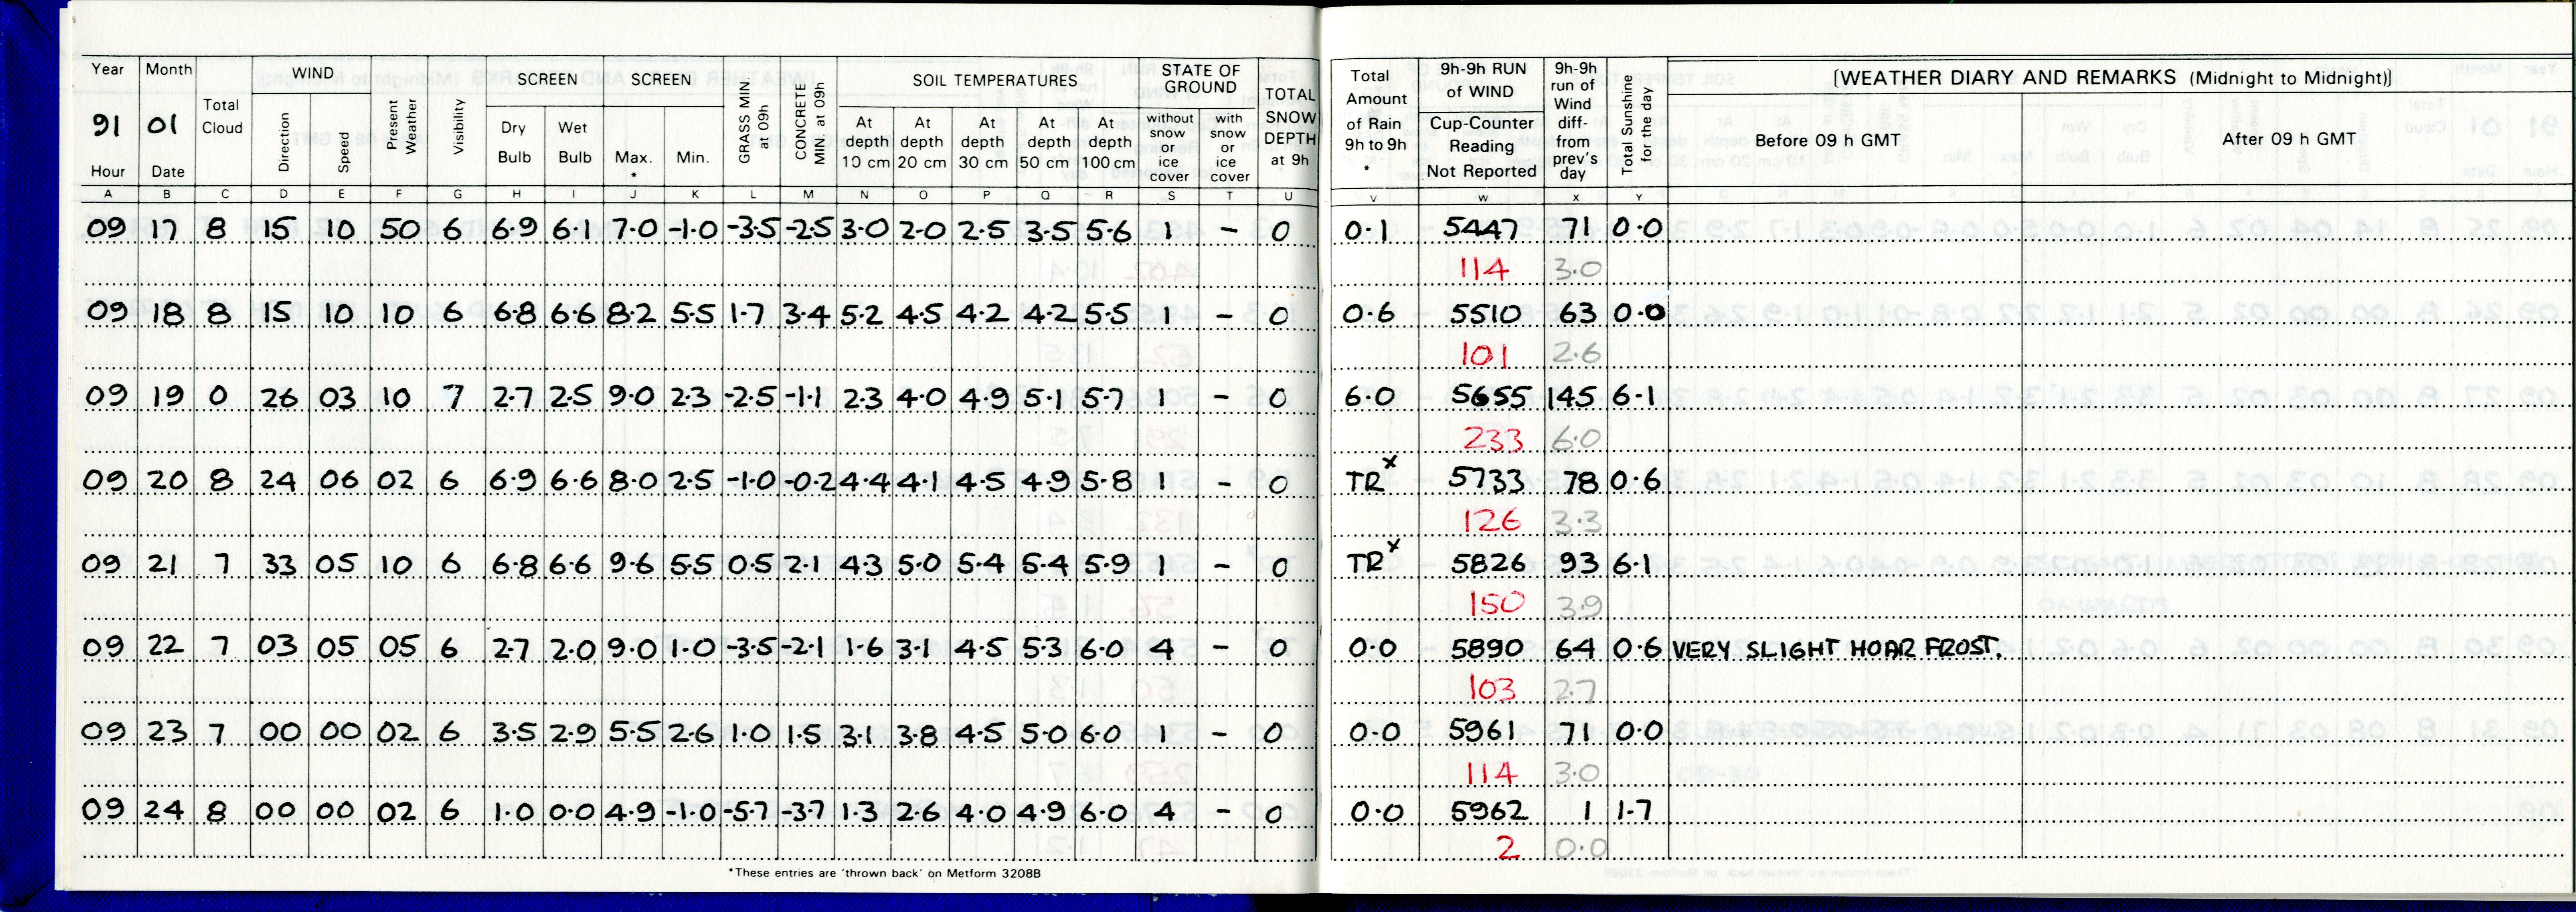 Year Month Total Cloud WIND Present Weather Visibility SCREEN SCREEN GRASS MIN at 09h CONCRETE MIN at 09h SOIL TEMPERATURES STATE OF GROUND TOTAL SNOW DEPTH at 9h Total Amount of Rain 9h to 9h * 9h-9h RUN of WIND 9h-9h run of Wind diff- from prev's day Total Sunshine for the day [WEATHER DIARY AND REMARKS (Midnight to Midnight)]
91 01 Direction Speed Dry Bulb Wet Bulb Max. * Min. At depth 10 cm At depth 20 cm At depth 30 cm At depth 50 cm At depth 100 cm without snow or ice cover with snow or ice cover Cup-Counter Reading Not Reported Before 09 h GMT After 09 h GMT
Hour Date
A B C D E F G H I J K L M N O P Q R S T U V W X Y
09 17 8 15 10 50 6 6.9 6.1 7.0 -1.0 -3.5 -2.5 3.0 2.0 2.5 3.5 5.6 1 - 0 0.1 5447 71 0.0
114 3.0
09 18 8 15 10 10 6 6.8 6.6 8.2 5.5 1.7 3.4 5.2 4.5 4.2 4.2 5.5 1 - 0 0.6 5510 63 0.0
101 2.6
09 19 0 26 03 10 7 2.7 2.5 9.0 2.3 -2.5 -1.1 2.3 4.0 4.9 5.1 5.7 1 - 0 6.0 5655 145 6.1
233 6.0
09 20 8 24 06 02 6 6.9 6.6 8.0 2.5 -1.0 -0.2 4.4 4.1 4.5 4.9 5.8 1 - 0 TR x 5733 78 0.6
126 3.3
09 21 7 33 05 10 6 6.8 6.6 9.6 5.5 0.5 2.1 4.3 5.0 5.4 5.4 5.9 1 - 0 TR x 5826 93 6.1
150 3.9
09 22 7 03 05 05 6 2.7 2.0 9.0 1.0 -3.5 -2.1 1.6 3.1 4.5 5.3 6.0 4 - 0 0.0 5890 64 0.6 VERY SLIGHT HOAR FROST.
103 2.7
09 23 7 00 00 02 6 3.5 2.9 5.5 2.6 1.0 1.5 3.1 3.8 4.5 5.0 6.0 1 - 0 0.0 5961 71 0.0
114 3.0
09 24 8 00 00 02 6 1.0 0.0 4.9 -1.0 -5.7 -3.7 1.3 2.6 4.0 4.9 6.0 4 - 0 0.0 5962 1 1.7
2 0.0
*These entries are 'thrown back' on Metform 3208B